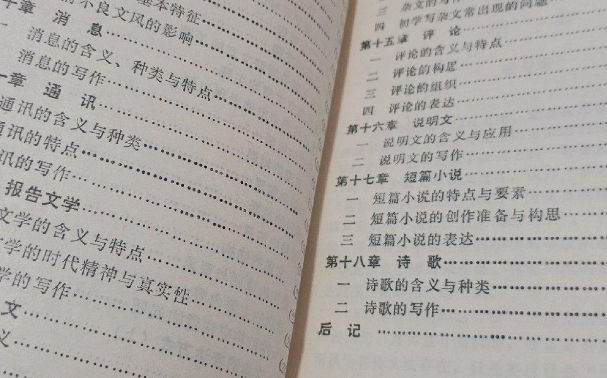 基本特征
不良文风的影响
十章 消 息
消息的含义、种类与特点
消息的写作
一章 通 讯
通讯的含义与种类
通讯的特点
讯的写作
报告文学
文学的含义与特点
文学的时代精神与真实性
学的写作
文
义
三 杂文的写作
四 初学写杂文常出现的问题
第十五章 评 论
一 评论的含义与特点
二 评论的构思
三 评论的组织
四 评论的表达
第十六章 说明文
一 说明文的含义与应用
二 说明文的写作
第十七章 短篇小说
一 短篇小说的特点与要素
二 短篇小说的创作准备与构思
三 短篇小说的表达
第十八章 诗 歌
一 诗歌的含义与种类
二 诗歌的写作
后 记